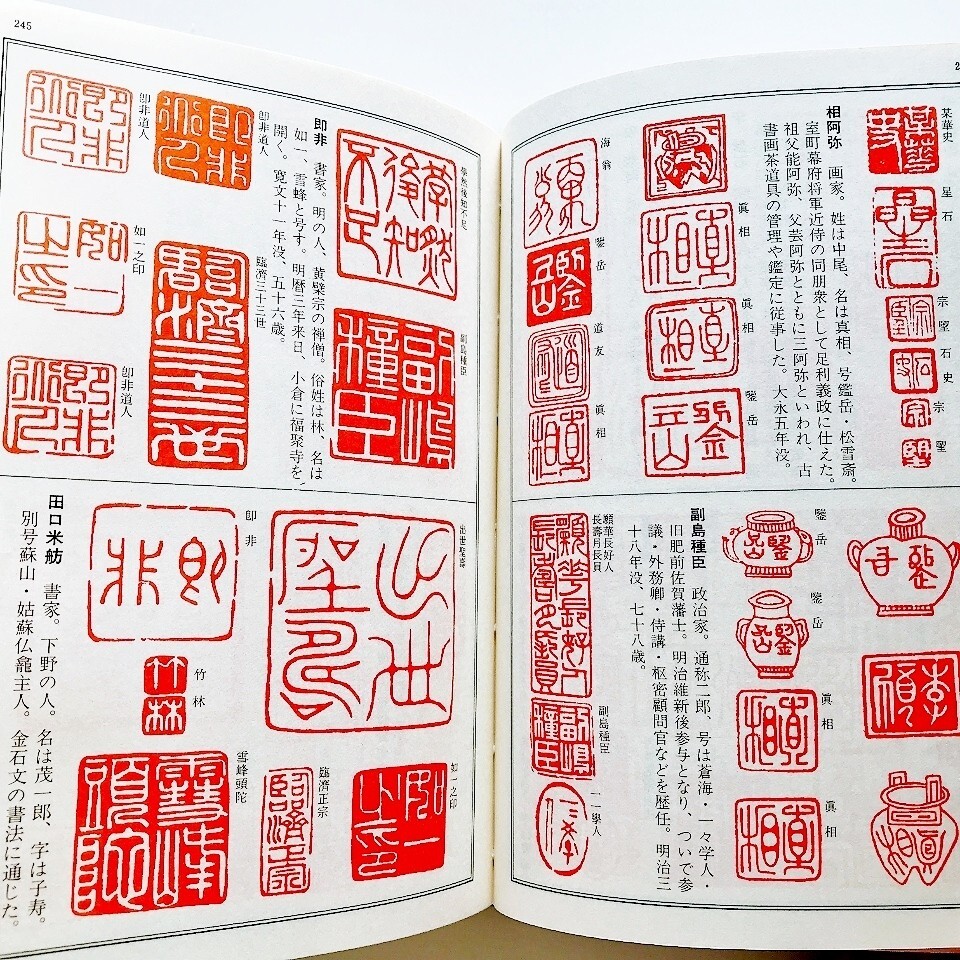 245
2
某華史
星石
宗壐
石史
宗壐
相阿弥　画家。姓は中尾、名は真相、号鑑岳・松雪斎。
室町幕府将軍近侍の同朋衆として足利義政に仕えた。
祖父能阿弥、父芸阿弥とともに三阿弥といわれ、古
書画茶道具の管理や鑑定に従事した。大永五年没。
眞相
眞相
鑒岳
海翁
鑒岳
道友
眞相
鑒岳
鑒岳
眞相
眞相
副島種臣　政治家。通称二郎、号は蒼海・一々学人・
旧肥前佐賀藩士。明治維新後参与となり、ついで参
議・外務卿・侍講・枢密顧問官などを歴任。明治三
十八年没、七十八歳。
願華長好人
長壽月長員
副島種臣
一一學人
學然後知不足
副島種臣
即非　書家。明の人、黄檗宗の禅僧。俗姓は林、名は
如一、雪峰と号す。明暦三年来日、小倉に福聚寺を
開く。寛文十一年没、五十六歳。
臨済三十三世
即非道人
即非道人
如一之印
即非道人
出世聖壽
如一之印
臨濟正宗
即非
竹林
雪峰頭陀
田口米舫　書家。下野の人。名は茂一郎、字は子寿。
別号蘇山・姑蘇仏龕主人。金石文の書法に通じた。